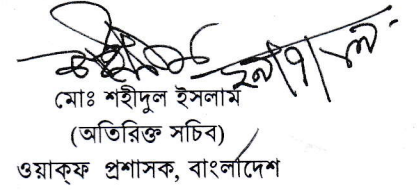 মোঃ শহীদুল ইসলাম
(অতিরিক্ত সচিব)
ওয়াক্‌ফ প্রশাসক, বাংলাদেশ